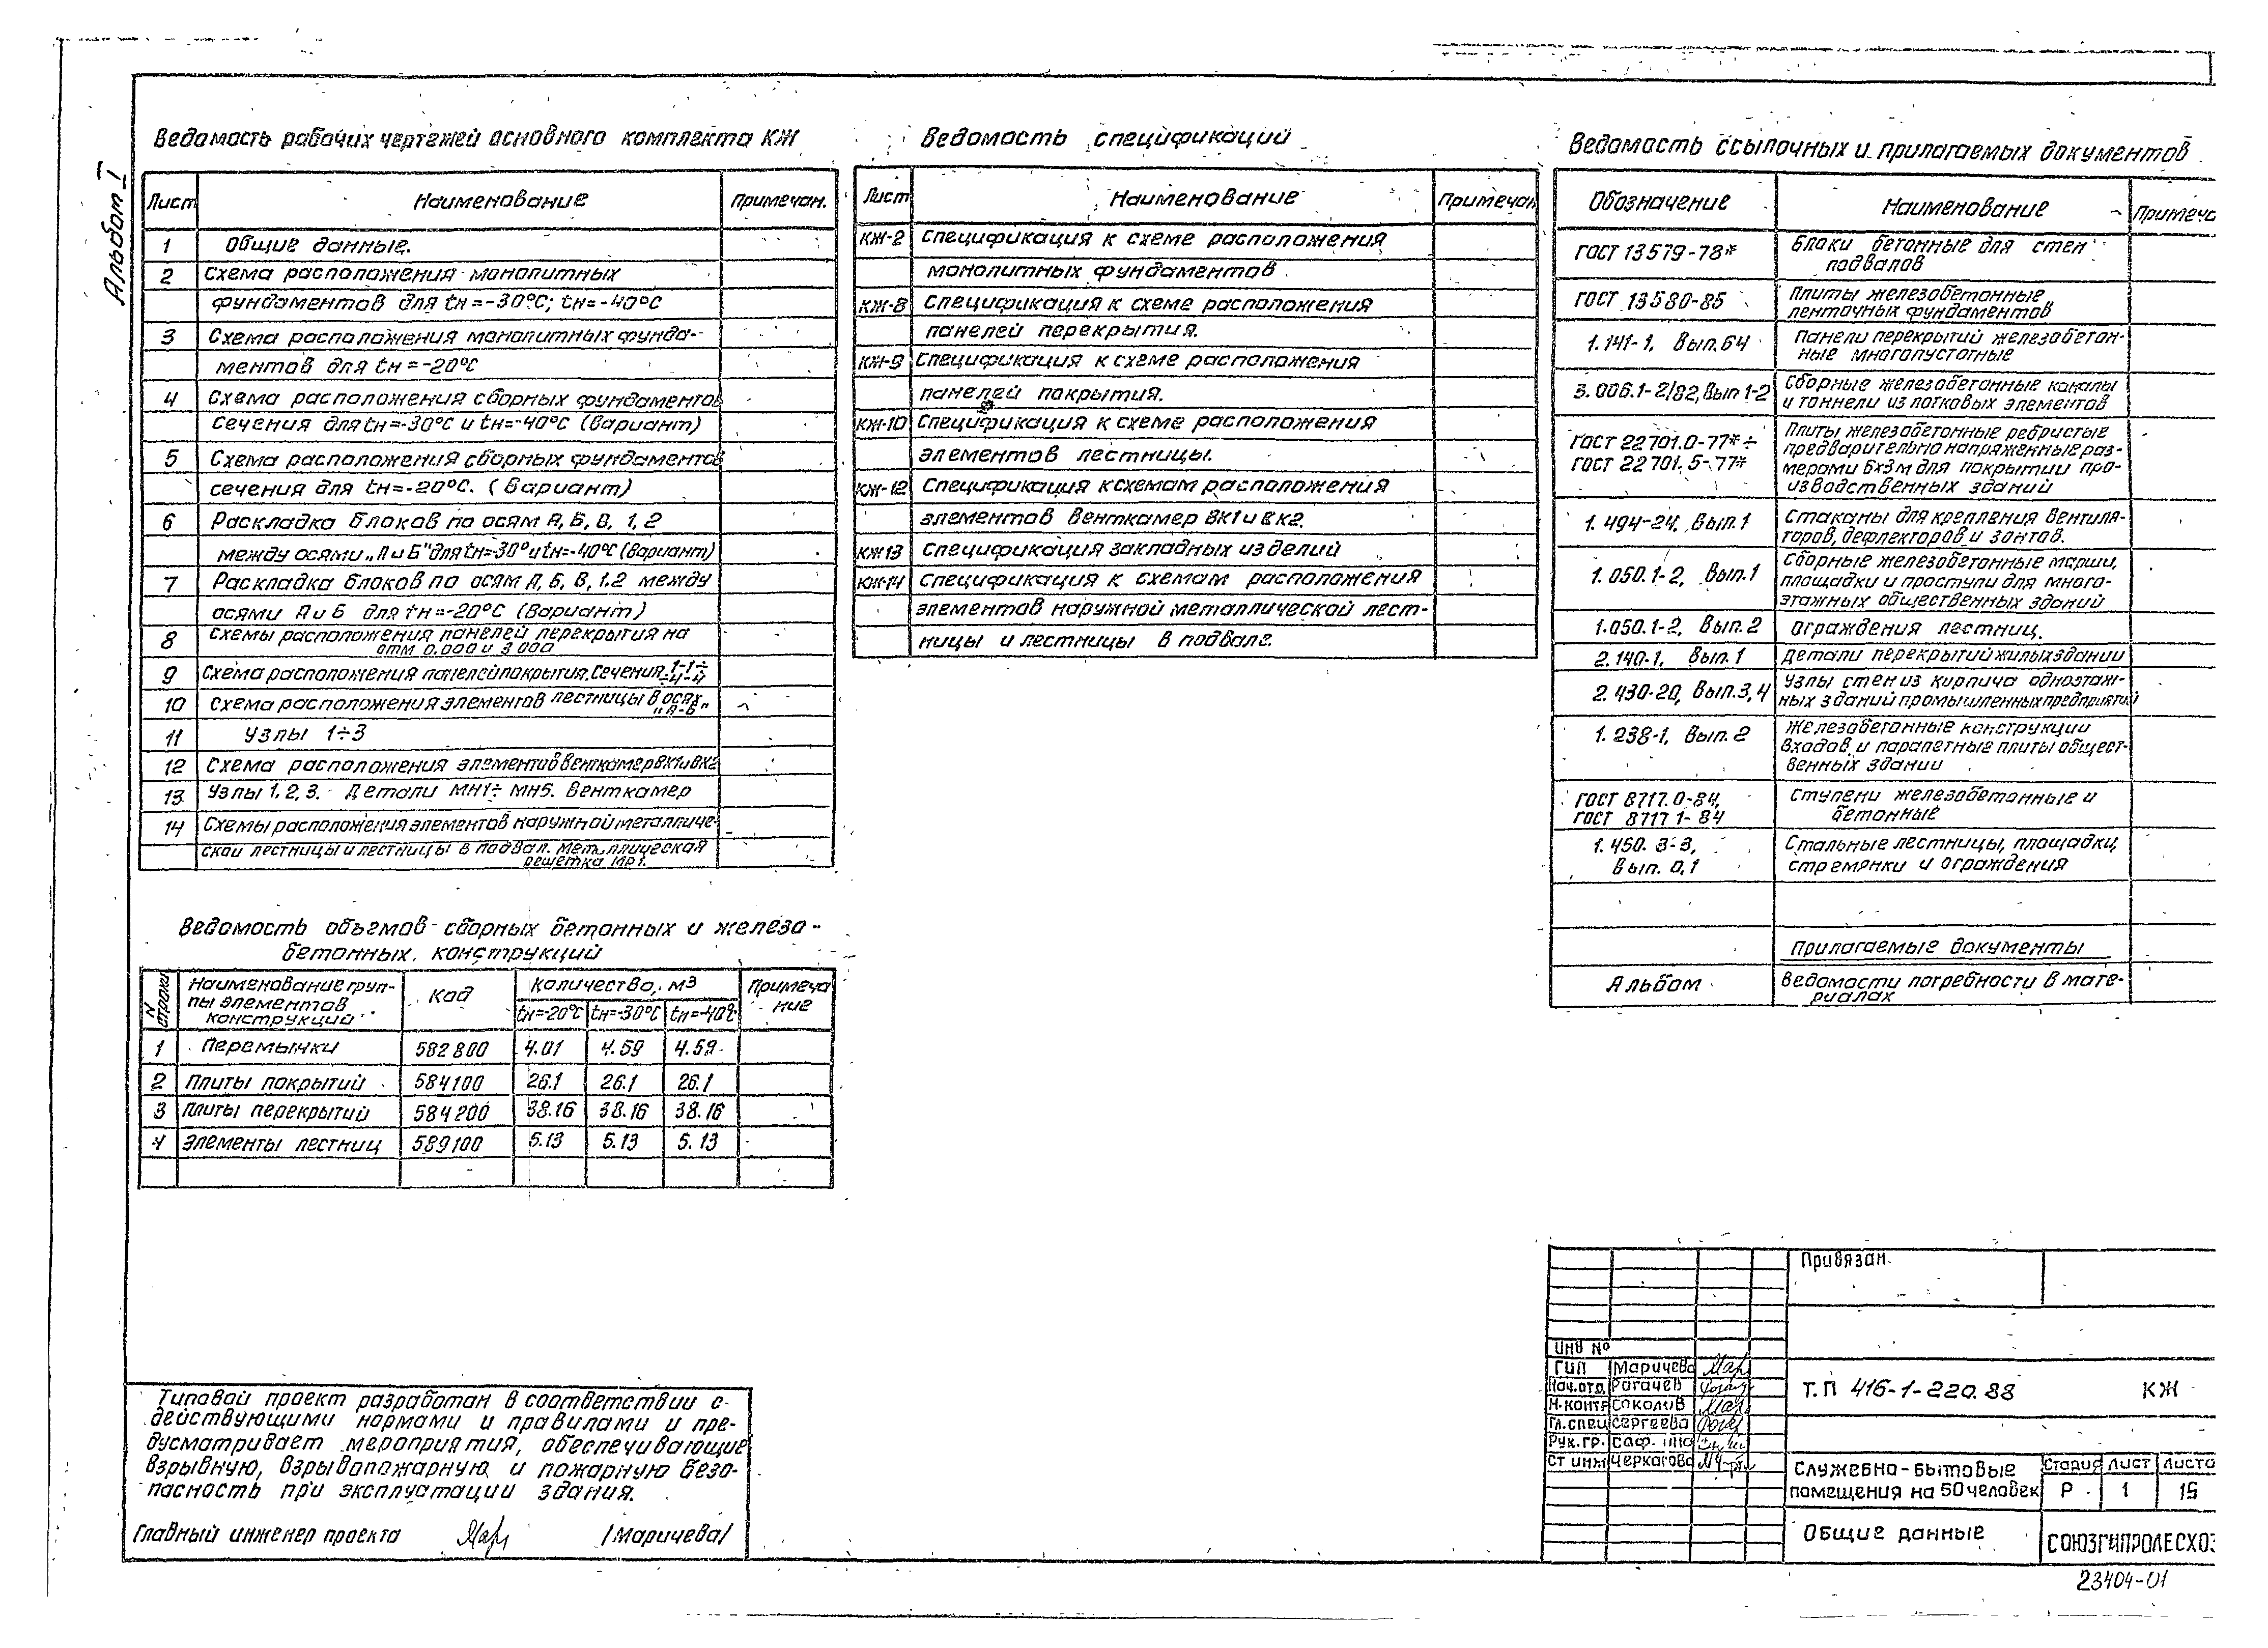 Альбом I
Ведомость рабочих чертежей основного комплекта КЖ
Лист Наименование Примечан.
1 Общие данные.
2 Схема расположения монолитных
фундаментов для tн=-30°С; tн=-40°С
3 Схема расположения монолитных фунда-
ментов для tн=-20°С
4 Схема расположения сборных фундаментов
Сечения для tн=-30°С и tн=-40°С (вариант)
5 Схема расположения сборных фундаментов
сечения для tн=-20°С. (Вариант)
6 Раскладка блоков по осям А, Б, В, 1, 2
между осями „А и Б" для tн=-30° и tн=-40°С (вариант)
7 Раскладка блоков по осям А, Б, В, 1,2 между
осями А и Б для tн=-20°С (вариант)
8 Схемы расположения панелей перекрытия на
отм 0.000 и 3 000
9 Схема расположения панелей покрытия. Сечения 1-1÷
÷4-4
10 Схема расположения элементов лестницы в осях
„А-Б"
11 Узлы 1÷3
12 Схема расположения элементов венткамер ВК1 и ВК2
13 Узлы 1, 2, 3. Детали МН1÷ МН5. Венткамер
14 Схемы расположения элементов наружной металличе-
ской лестницы и лестницы в подвал. Металлическая
решетка МР1.
Ведомость спецификаций
Лист Наименование Примечан
КЖ-2 Спецификация к схеме расположения
монолитных фундаментов.
КЖ-8 Спецификация к схеме расположения
панелей перекрытия.
КЖ-9 Спецификация к схеме расположения
панелей покрытия.
КЖ-10 Спецификация к схеме расположения
элементов лестницы.
КЖ-12 Спецификация к схемам расположения
элементов венткамер ВК1 и ВК2.
КЖ13 Спецификация закладных изделий
КЖ-14 Спецификация к схемам расположения
элементов наружной металлической лест-
ницы и лестницы в подвале.
Ведомость ссылочных и прилагаемых документов
Обозначение Наименование Примеча
ГОСТ 13579-78* Блоки бетонные для стен
подвалов
ГОСТ 13580-85 Плиты железобетонные
ленточных фундаментов
1.141-1, Вып.64 Панели перекрытий железобетон-
ные многопустотные
3.006.1-2/82, Вып 1-2 Сборные железобетонные каналы
и тоннели из лотковых элементов
ГОСТ 22701.0-77*÷
ГОСТ 22701.5-77*
Плиты железобетонные ребристые
предварительно напряженные раз-
мерами 6х3м для покрытии про-
изводственных зданий
1.494-24, Вып.1 Стаканы для крепления вентиля-
торов, дефлекторов и зонтов.
1.050.1-2, Вып.1 Сборные железобетонные марши,
площадки и проступи для много-
этажных общественных зданий
1.050.1-2, Вып.2 Ограждения лестниц.
2.140-1, Вып.1 Детали перекрытий жилых здании
2.430-20, Вып.3,4 Узлы стен из кирпича одноэтаж-
ных зданий промышленных предприятий
1.238-1, Вып.2 Железобетонные конструкции
входов и парапетные плиты общест-
венных здании
ГОСТ 8717.0-84,
ГОСТ 8717 1-84
Ступени железобетонные и
бетонные
1.450.3-3,
Вып. 0,1
Стальные лестницы, площадки,
стремянки и ограждения
Прилагаемые документы
Альбом Ведомости потребности в мате-
риалах
Ведомость объемов сборных бетонных и железо-
бетонных конструкций
N строки Наименование груп-
пы элементов
конструкций
Код Количество, м3 Примеча
ние
tн=-20°С tн=-30°С tн=-40°С
1 Перемычки 582800 4.01 4.59 4.59
2 Плиты покрытий 584100 26.1 26.1 26.1
3 Плиты перекрытий 584200 38.16 38.16 38.16
4 Элементы лестниц 589100 5.13 5.13 5.13
Типовой проект разработан в соответствии с
действующими нормами и правилами и пре-
дусматривает мероприятия, обеспечивающие
взрывную, взрывопожарную и пожарную безо-
пасность при эксплуатации здания.
Главный инженер проекта /Маричева/
Привязан
Инв №
ГИП Маричева
Нач.отд. Рогачев
Н.контр Соколов
Гл.спец Сергеева
Рук.гр.
Ст инж Черкасова
Т.П 416-1-220.88 КЖ
Служебно-бытовые
помещения на 50 человек
Стадия Лист Листо
Р 1 15
Общие данные
СОЮЗГИПРОЛЕСХОЗ
23404-01